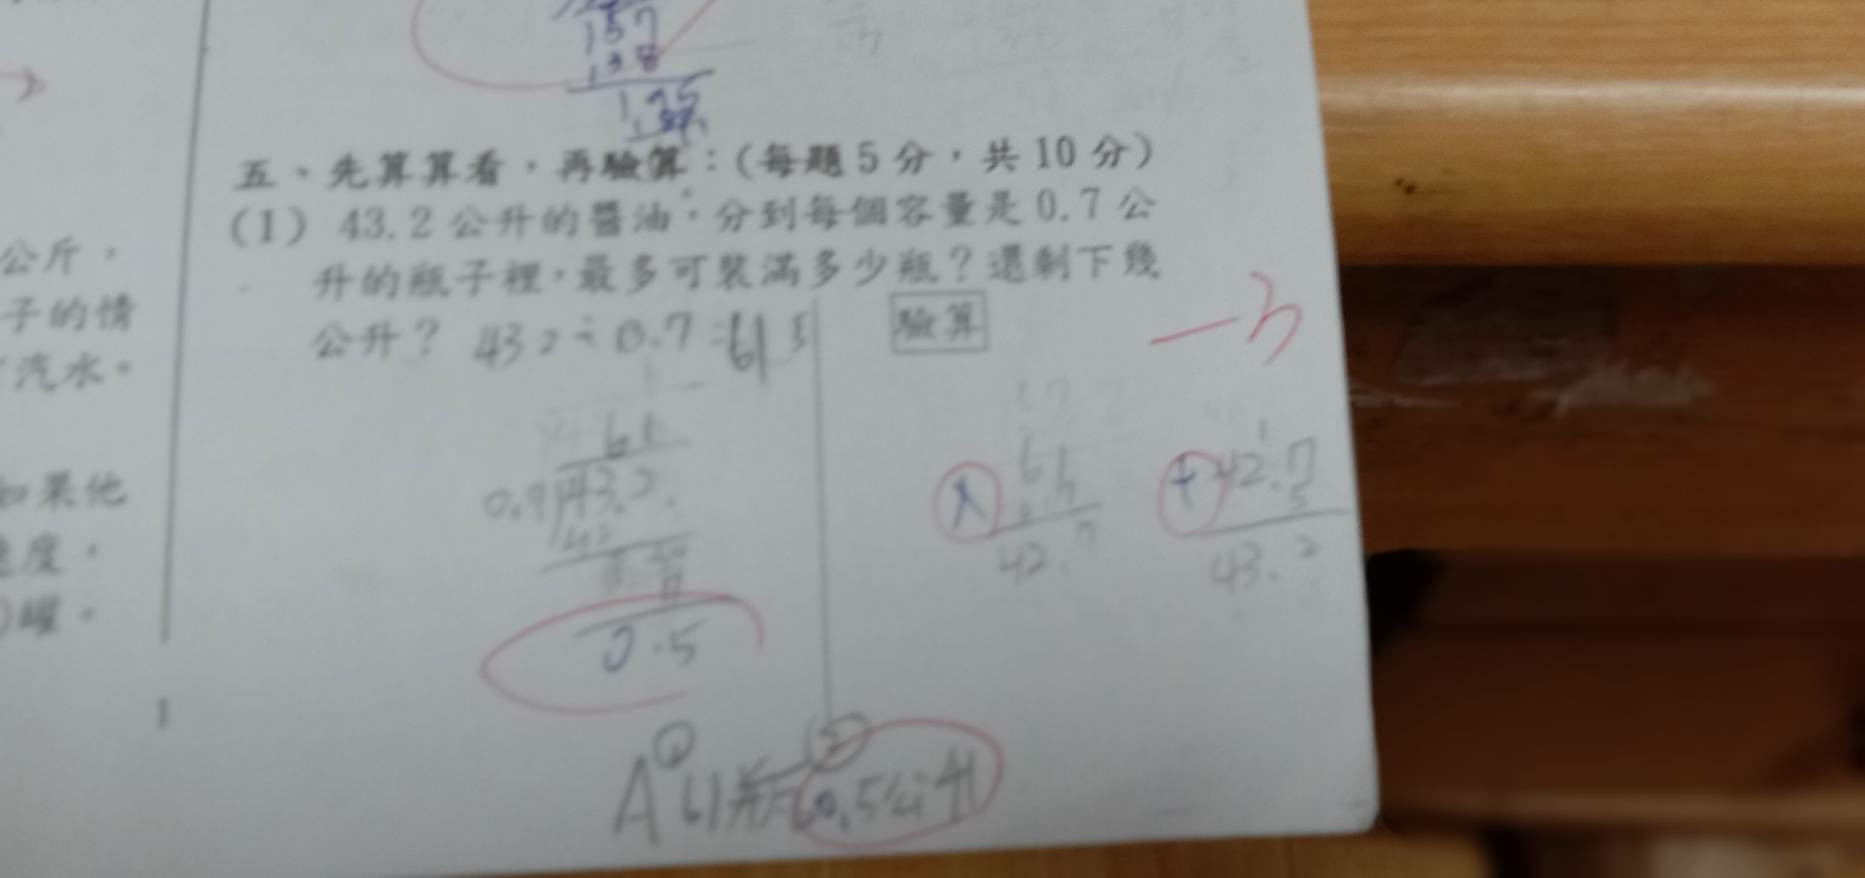 157
138
五、先算算看，再驗算：（每題5分，共10分）
（1） 43.2公升的醬油，分到每個容量是0.7公
升的瓶子裡，最多可裝滿多少瓶？還剩下幾
公升？ 43 2÷0.7=61
驗算
公斤，
子的情
汽水。
如果他
度，
罐。
61
43.2
42
0.5
61
×
42.7
+42.7
5
43.2
A①61瓶②0.5公升
1